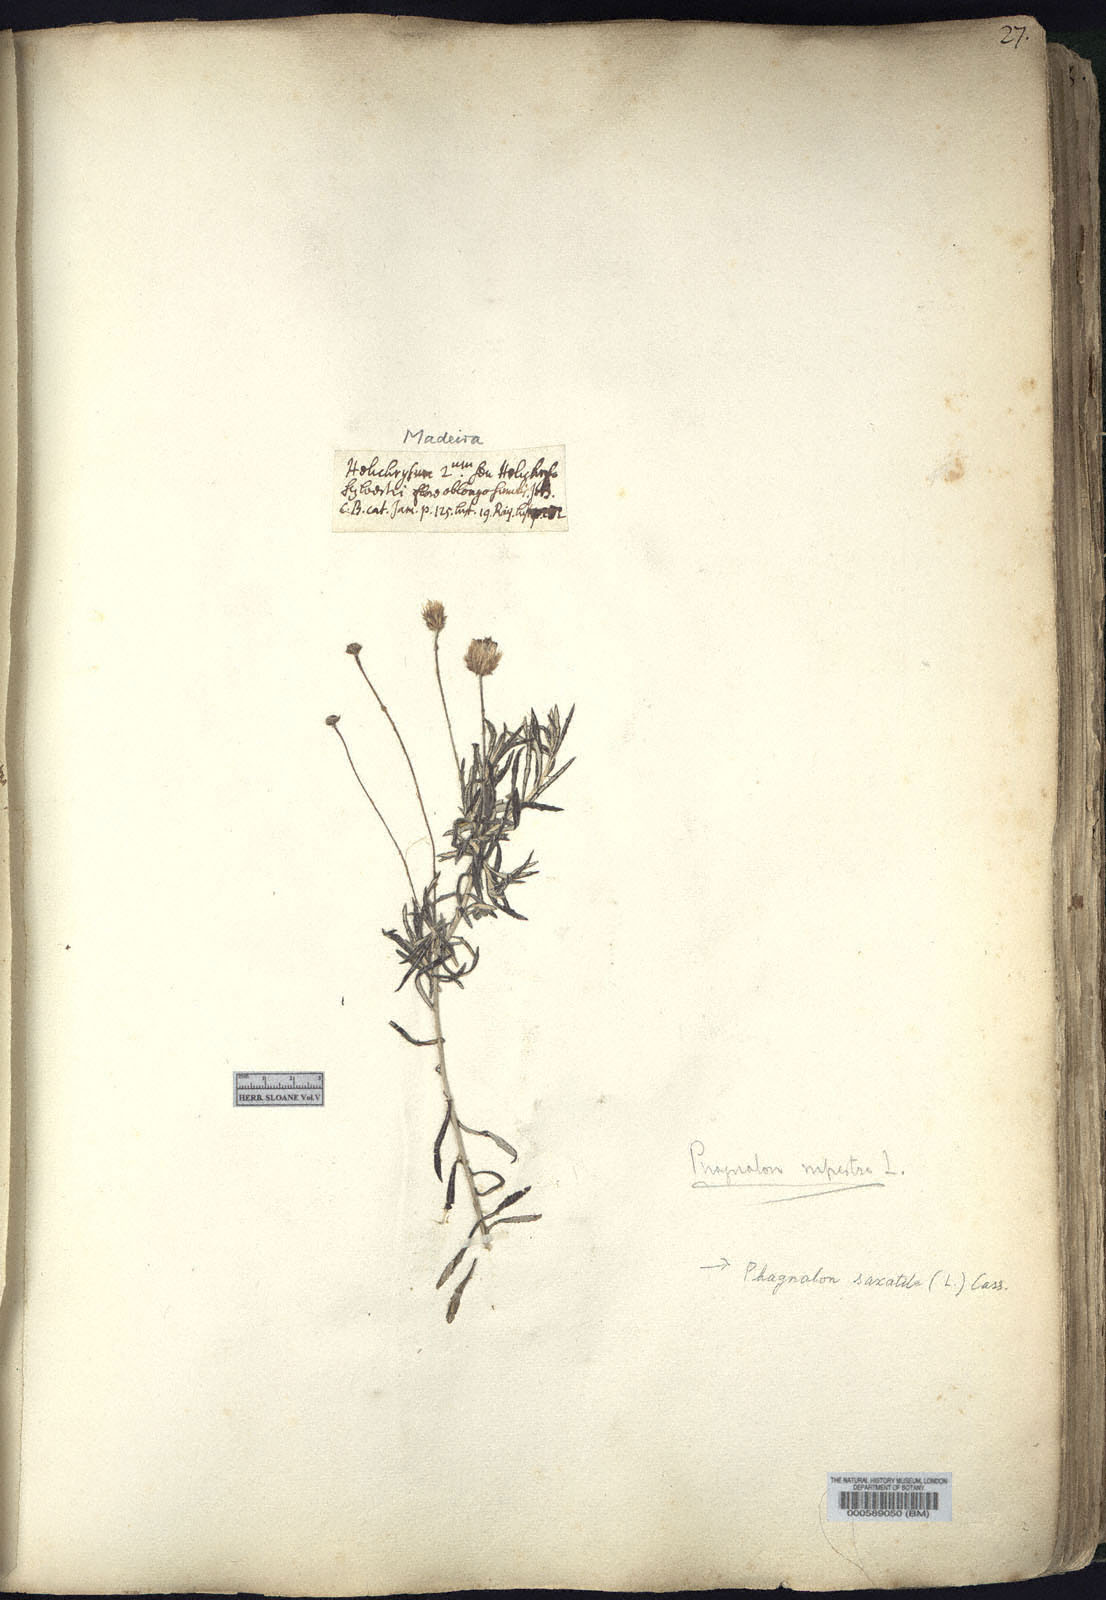 27.
Madeira
Helichrysum 2um. seu Helichryso
sylvestri flore oblongo similis J:B.
C.B. cat. Jam. p. 125. hist. 19. Raij. hist.
HERB. SLOANE Vol.V
Phagnalon rupestre L.
→ Phagnalon saxatile (L.) Cass.
THE NATURAL HISTORY MUSEUM, LONDON
DEPARTMENT OF BOTANY
000589050 (BM)